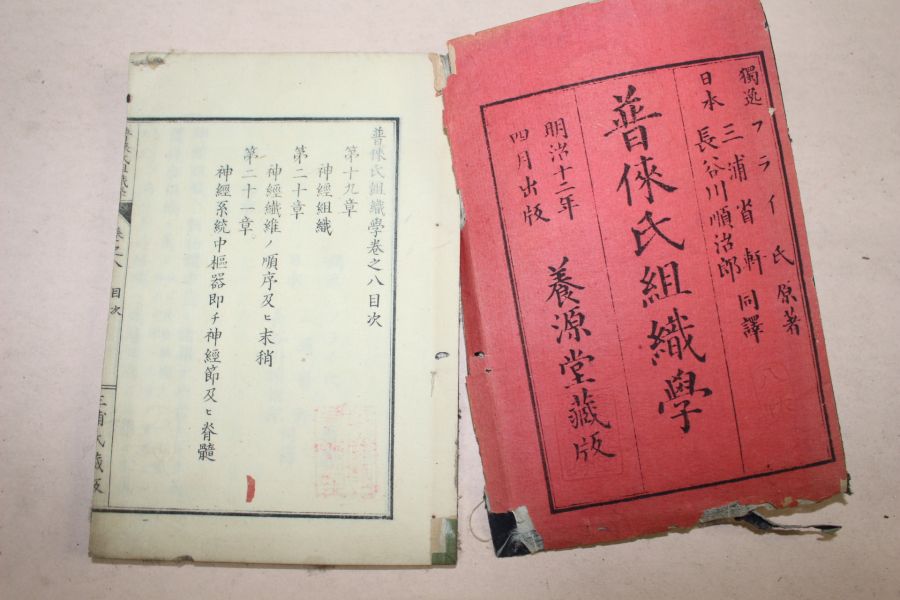 獨逸フライ氏原著
日本 三浦省軒
長谷川順治郎 同譯
普俫氏組織學
明治十二年
四月出版
養源堂藏版
普俫氏組織學卷之八目次
第十九章
神經組織
第二十章
神經纖維ノ順序及ヒ末稍
第二十一章
神經系統中樞器即チ神經節及ヒ脊髓
卷之八
目次
三浦氏藏版